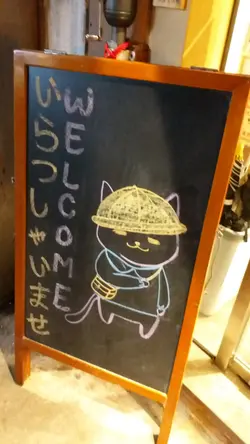 WELCOME
いらっしゃいませ